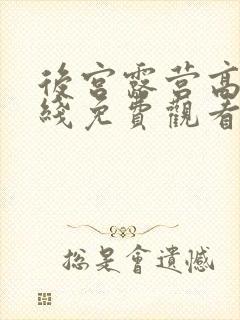 後宮露營高
綫免費觀看
總是會遺憾